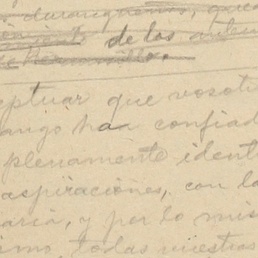 durangueños, que
de los
eptuar que vosotr
ango ha confiad
plenamente ident
aspiraciones, con la
arcia, y por lo mis
ismo, todas nuestras